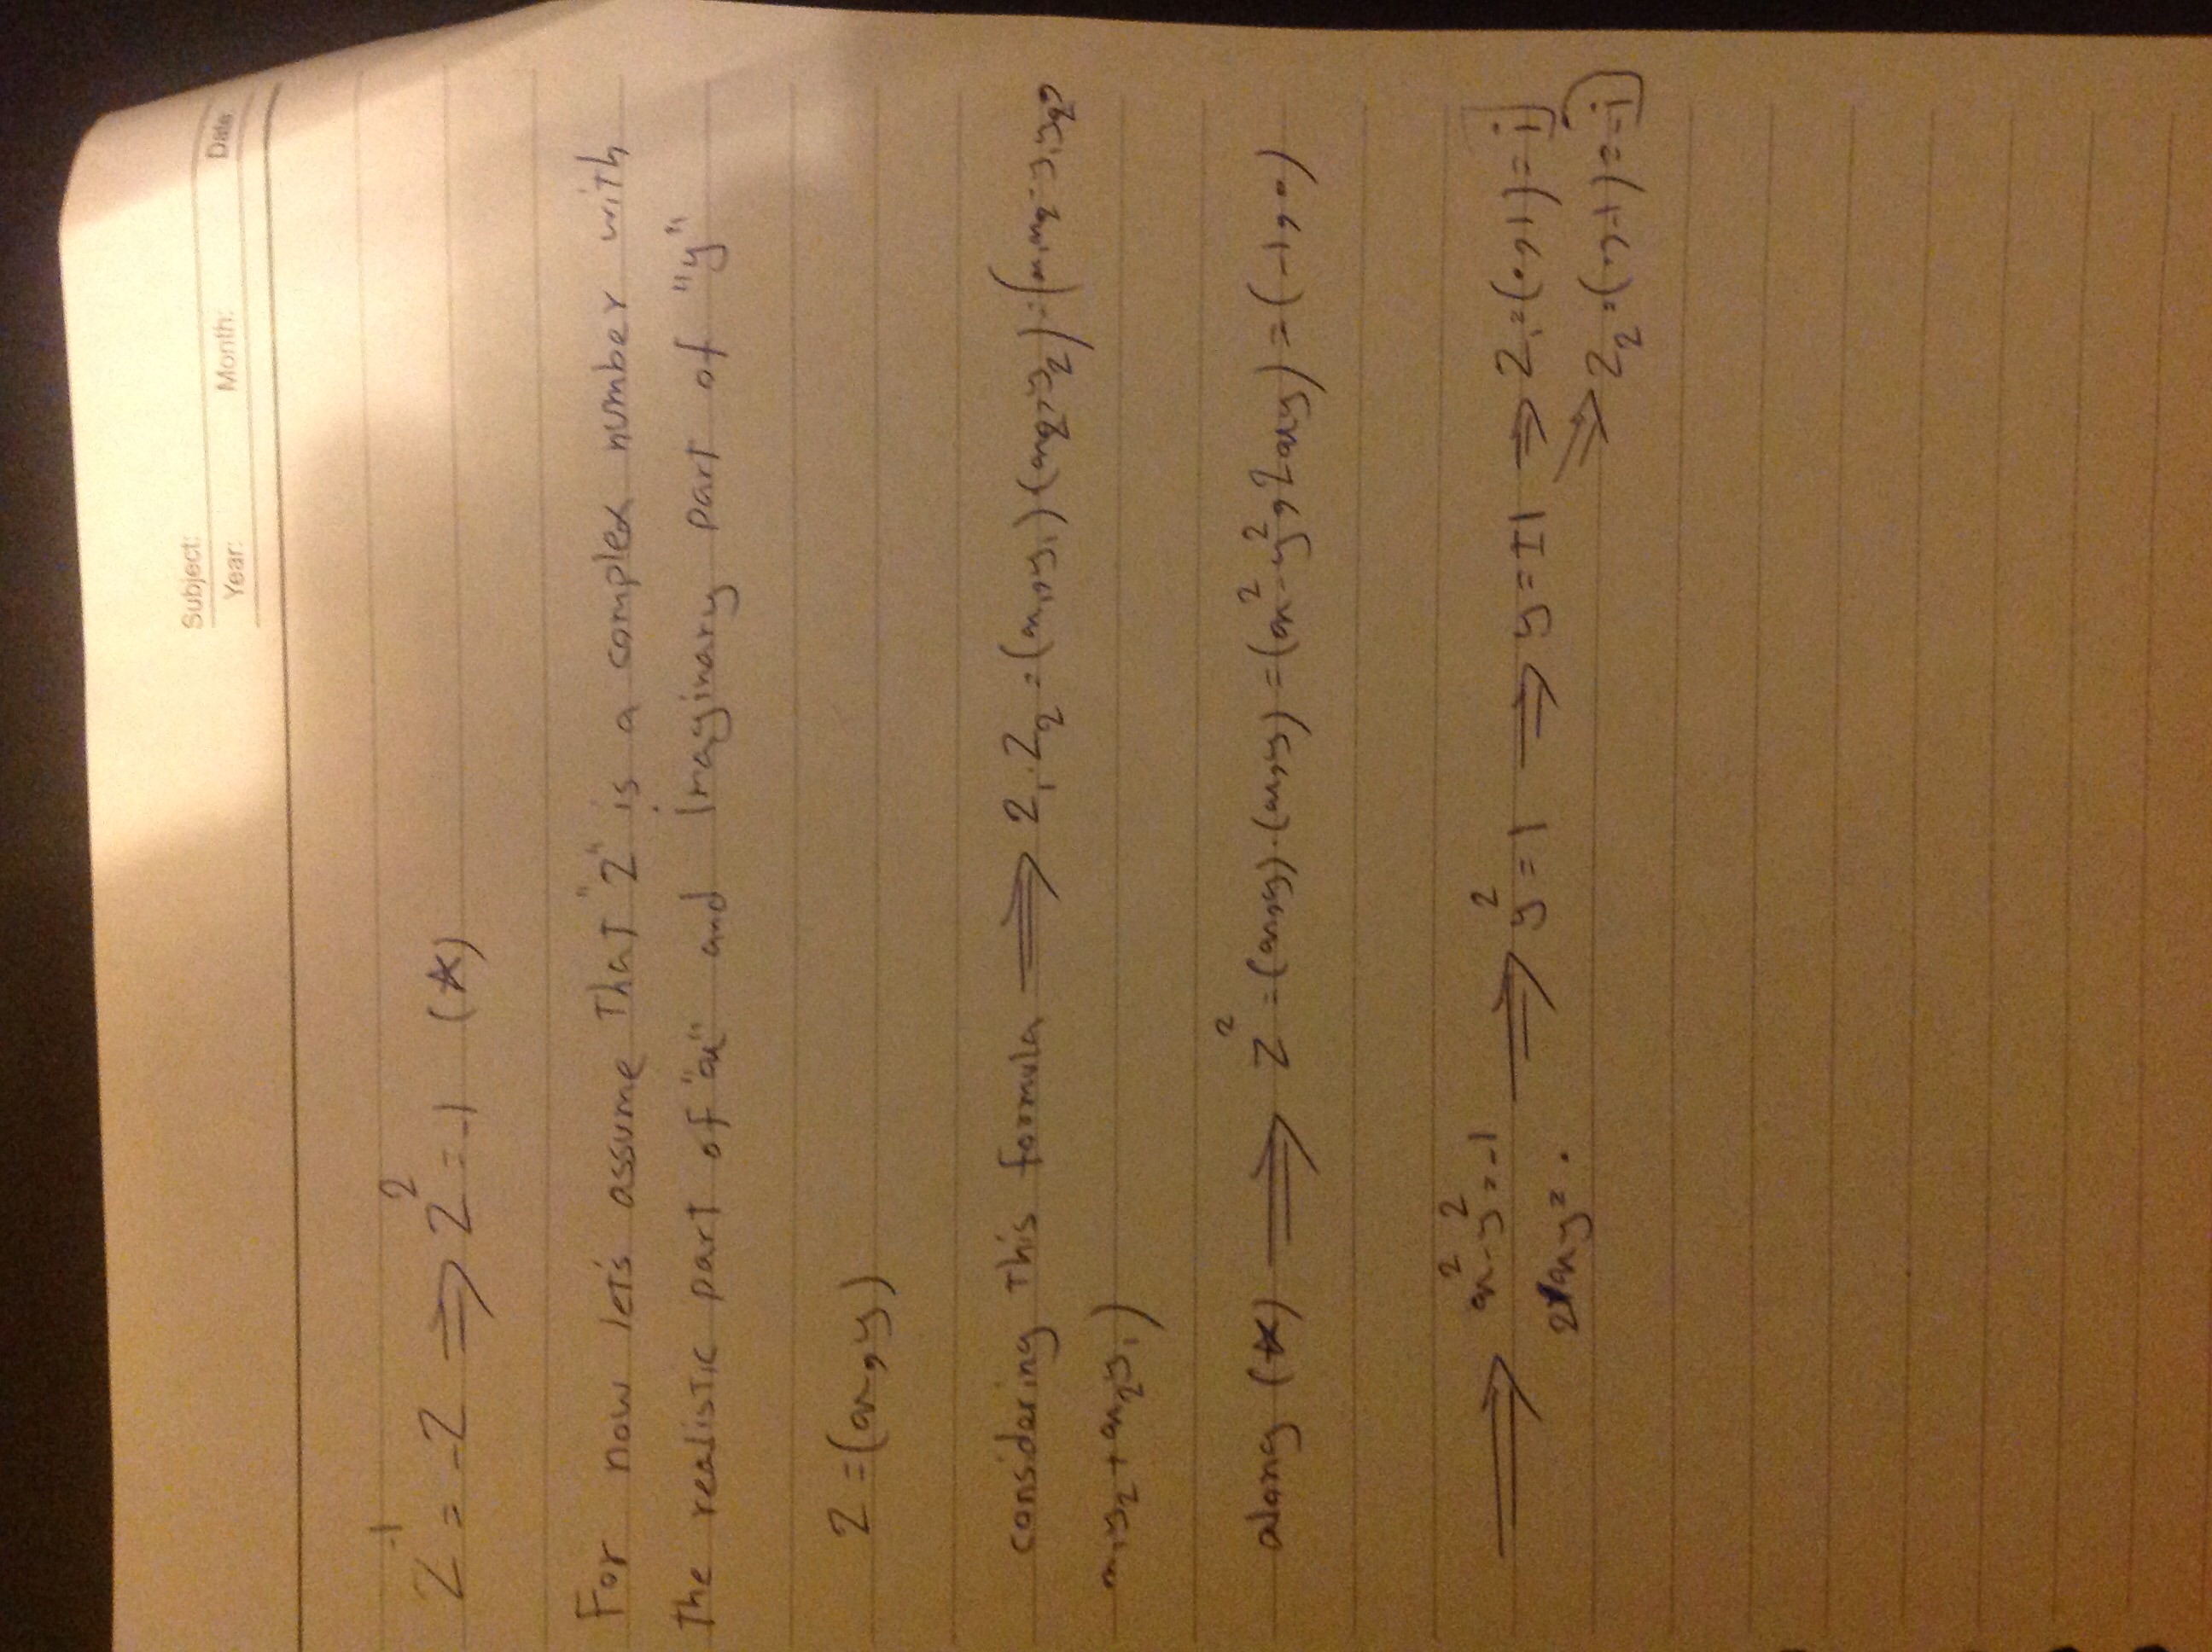 Subject:
Year: Month: Date:
z⁻¹ = -z ⟹ z² = -1 (*)
For now let's assume That "z" is a complex number with
The realistic part of "x" and Imaginary part of "y"
z = (x, y)
considering This formula ⟹ z₁.z₂ = (x₁, y₁)(x₂, y₂) = (x₁x₂ - y₁y₂,
x₁y₂ + x₂y₁)
along (*) ⟹ z² = (x, y).(x, y) = (x² - y², 2xy) = (-1, 0)
⟹ x² - y² = -1 ⟹ y² = 1 ⟹ y = ±1 ⟹ z₁ = (0, 1) = i
2xy = 0 ⟹ z₂ = (0, -1) = -i